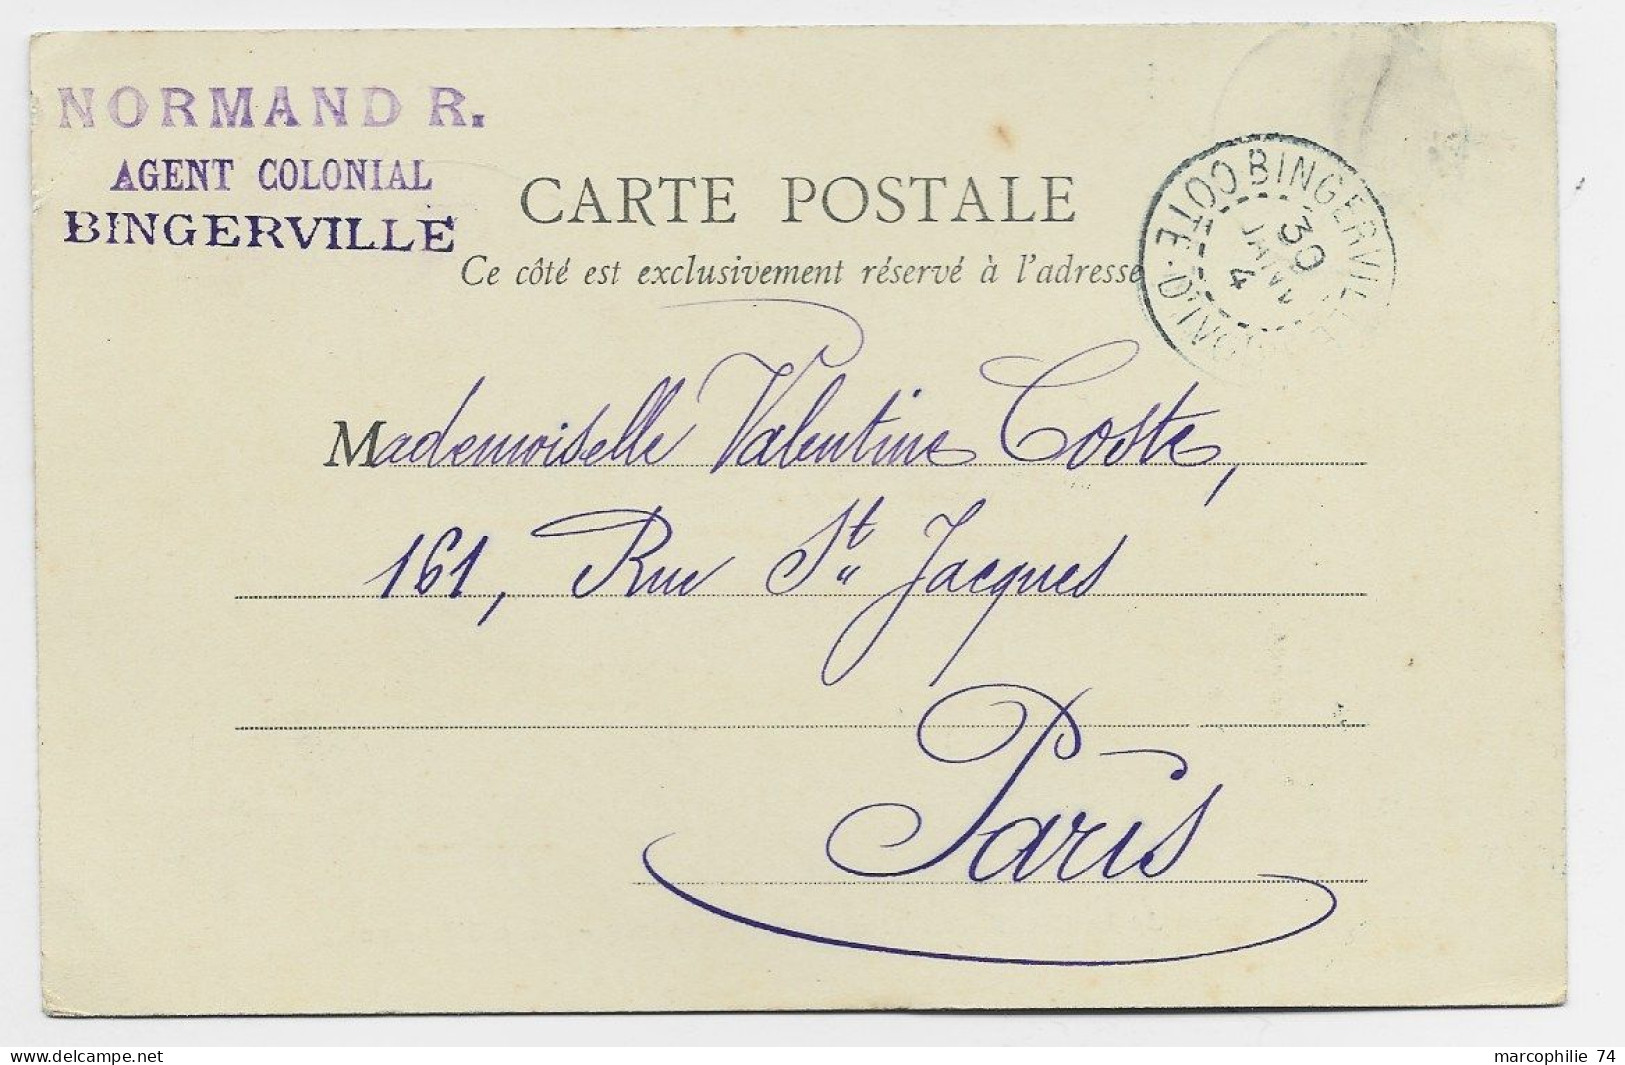 NORMAND R.
AGENT COLONIAL
BINGERVILLE
CARTE POSTALE
Ce côté est exclusivement réservé à l'adresse
BINGERVILLE COTE D'IVOIRE
30
JANV
4
Mademoiselle Valentine Coste,
161, Rue St Jacques
Paris
marcophilie 74